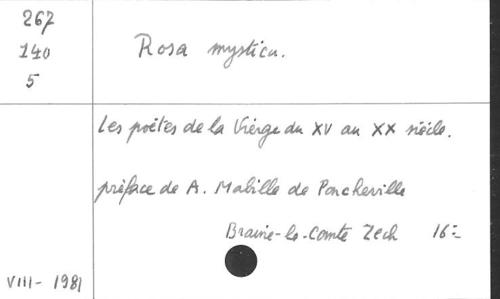 267
140
5
Rosa mystica.
Les poëtes de la Vierge du XV au XX siècle.
préface de A. Mabille de Poncheville
Braine-le-Comte Zech 16=
VIII- 1981